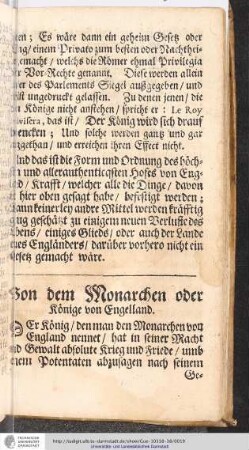 ten; Es wäre dann ein geheim Gesetz oder
ng/ einem Privato zum besten oder Nachthei-
emacht/ welchs die Römer ehmal Privilegia
er Vor-Rechte genannt. Diese werden allein
er des Parlements Siegel außgegeben/ und
st ungedruckt gelassen. Zu denen jenen/ die
n Könige nicht anstehen/ spricht er: Le Roy
wisera, das ist/ Der König wird sich drauf
encken; Und solche werden gantz und gar
tgethan/ und erreichen ihren Effect nicht.
Und das ist die Form und Ordnung des höch-
n und allerauthenticqsten Hofes von Eng-
nd/ Krafft/ welcher alle die Dinge/ davon
t hier oben gesagt habe/ befestiget werden;
ann keinerley andre Mittel werden kräfftig
ng geschätzt zu einigem neuen Verluste des
bens/ einiges Glieds/ oder auch der Lande
nes Engländers/ darüber vorhero nicht ein
esetz gemacht wäre.
Von dem Monarchen oder
Könige von Engelland.
Er König/ den man den Monarchen von
England nennet/ hat in seiner Macht
nd Gewalt absolute Krieg und Friede/ umb
enem Potentaten abzusagen nach seinem
Ge-